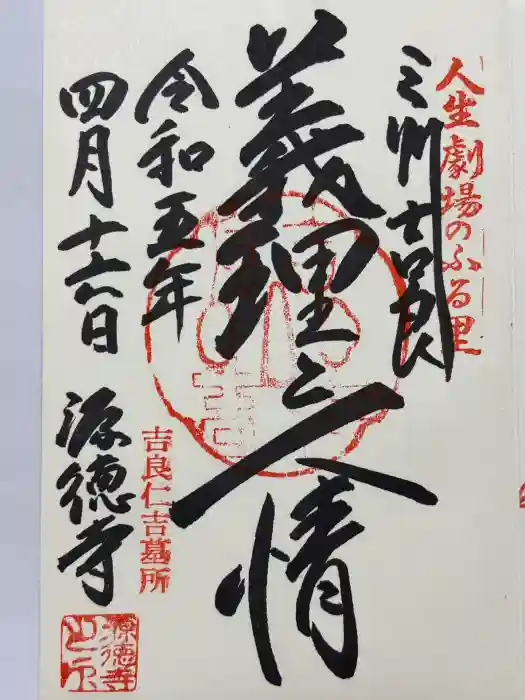 人生劇場のふる里
三州吉良
義理と人情
令和五年
四月十六日
源徳寺
吉良仁吉墓所
源徳寺